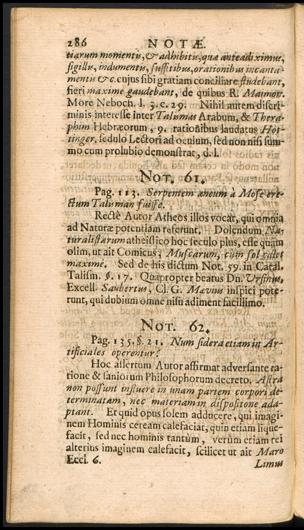 286 NOTÆ.
tiarum momentis, & adhibitis, quæ ante adiximus,
sigillis, indumentis, suffitibus, orationibus incanta-
mentis &c. cujus sibi gratiam conciliare studebant,
fieri maxime gaudebant, de quibus R. Maimon.
More Neboch. l. 3. c. 29. Nihil autem discri-
minis interesse inter Talumas Arabum, & Thera-
phim Hebræorum, 9. rationibus laudatus Hot-
tinger. sedulo Lectori ad oculum, sed non nisi sum-
mo cum prolubio demonstrat, d. l.
NOT. 61.
Pag. 113. Serpentem æneum à Mose ere-
ctum Taluman fuisse.
Rectè Autor Atheos illos vocat, qui omnia
ad Naturæ potentiam referunt. Dolendum, Na-
turalistarum atheistico hoc seculo plus, esse quam
olim, ut ait Comicus, Muscarum, cum sol calet
maxime. Sed de his dictum Not. 59. in Catal.
Talism. §. 17. Quapropter beatus Dn. Ursinus,
Excell. Saubertus, Cl. G. Mœvius inspici pote-
runt, qui dubium omne nisu adiment facillimo.
NOT. 62.
Pag. 135. §. 21. Num sidera etiam in Ar-
tificiales operentur?
Hoc assertum Autor affirmat adversante ra-
tione & saniorum Philosophorum decreto. Astra
non possunt influere in unam partem corporis de-
terminatam, nec materiam in dispositione ada-
ptant. Et quid opus solem adducere, qui imagi-
nem Hominis ceream calefaciat, quin etiam lique-
facit, sed nec hominis tantum, verùm etiam rei
alterius imaginem calefacit, scilicet ut ait Maro
Ecci. 6.
Limus